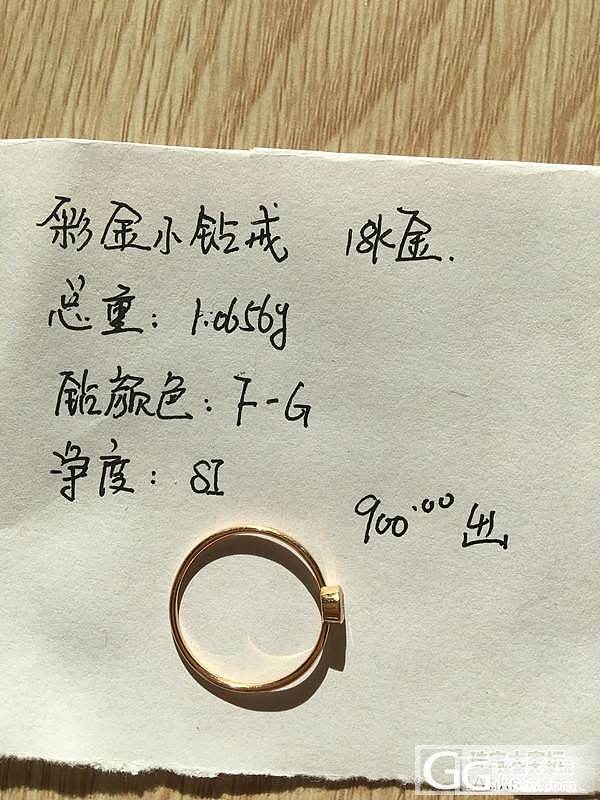 彩金小钻戒 18k金.
总重: 1.0656g
钻颜色: F-G
净度: SI
900.00 出
GG